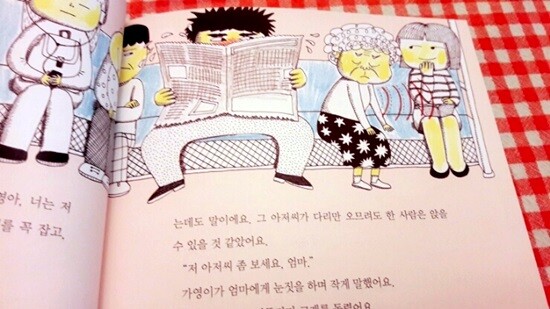 영아, 너는 저
를 꼭 잡고,
는데도 말이에요. 그 아저씨가 다리만 오므려도 한 사람은 앉을
수 있을 것 같았어요.
"저 아저씨 좀 보세요, 엄마."
가영이가 엄마에게 눈짓을 하며 작게 말했어요.
고개를 돌렸어요